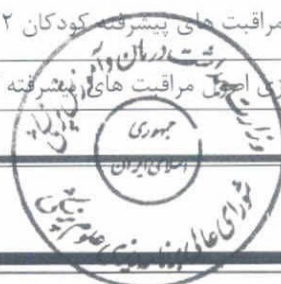 مراقبت های پیشرفته کودکان ۲
زی اصول مراقبت های پیشرفته
وزارت بهداشت درمان و آموزش پزشکی
جمهوری
اسلامی ایران
شورای عالی برنامه ریزی علوم پزشکی